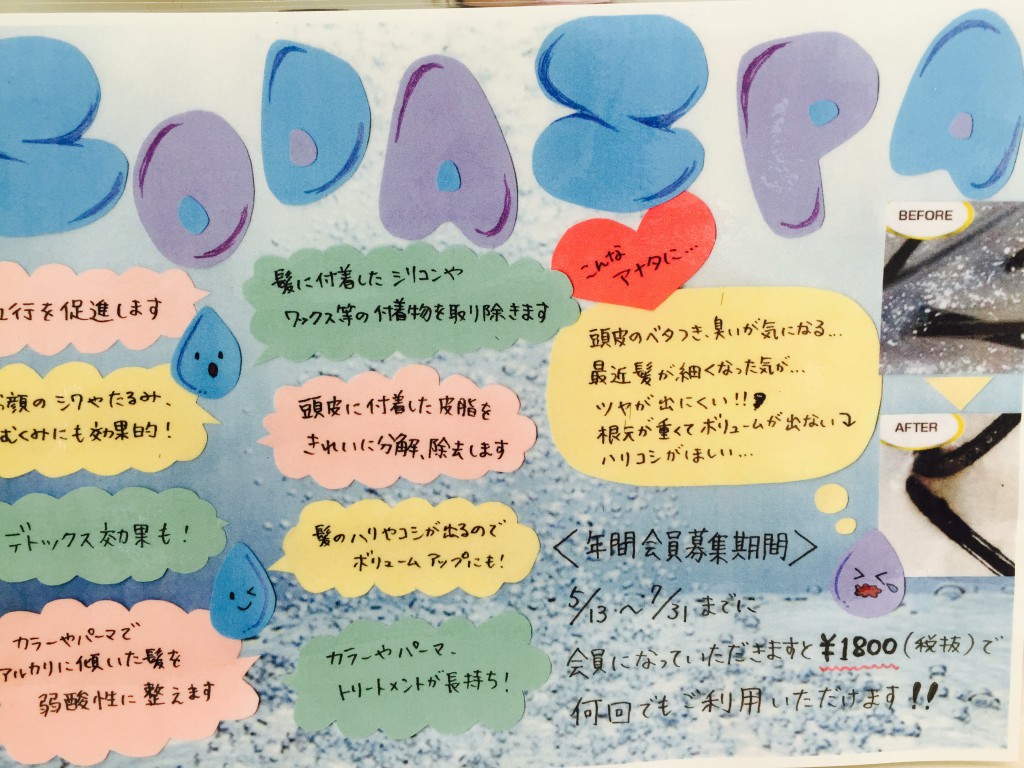 SODA SPA
行を促進します
顔のシワやたるみ、
むくみにも効果的!
デトックス効果も!
カラーやパーマで
アルカリに傾いた髪を
弱酸性に整えます
髪に付着したシリコンや
ワックス等の付着物を取り除きます
頭皮に付着した皮脂を
きれいに分解、除去します
髪のハリやコシが出るので
ボリュームアップにも!
カラーやパーマ、
トリートメントが長持ち!
こんな
アナタに…
頭皮のベタつき、臭いが気になる…
最近髪が細くなった気が…
ツヤが出にくい!!
根元が重くてボリュームが出ない
ハリコシがほしい…
BEFORE
AFTER
<年間会員募集期間>
5/13~7/31までに
会員になっていただきますと¥1800(税抜)で
何回でもご利用いただけます!!